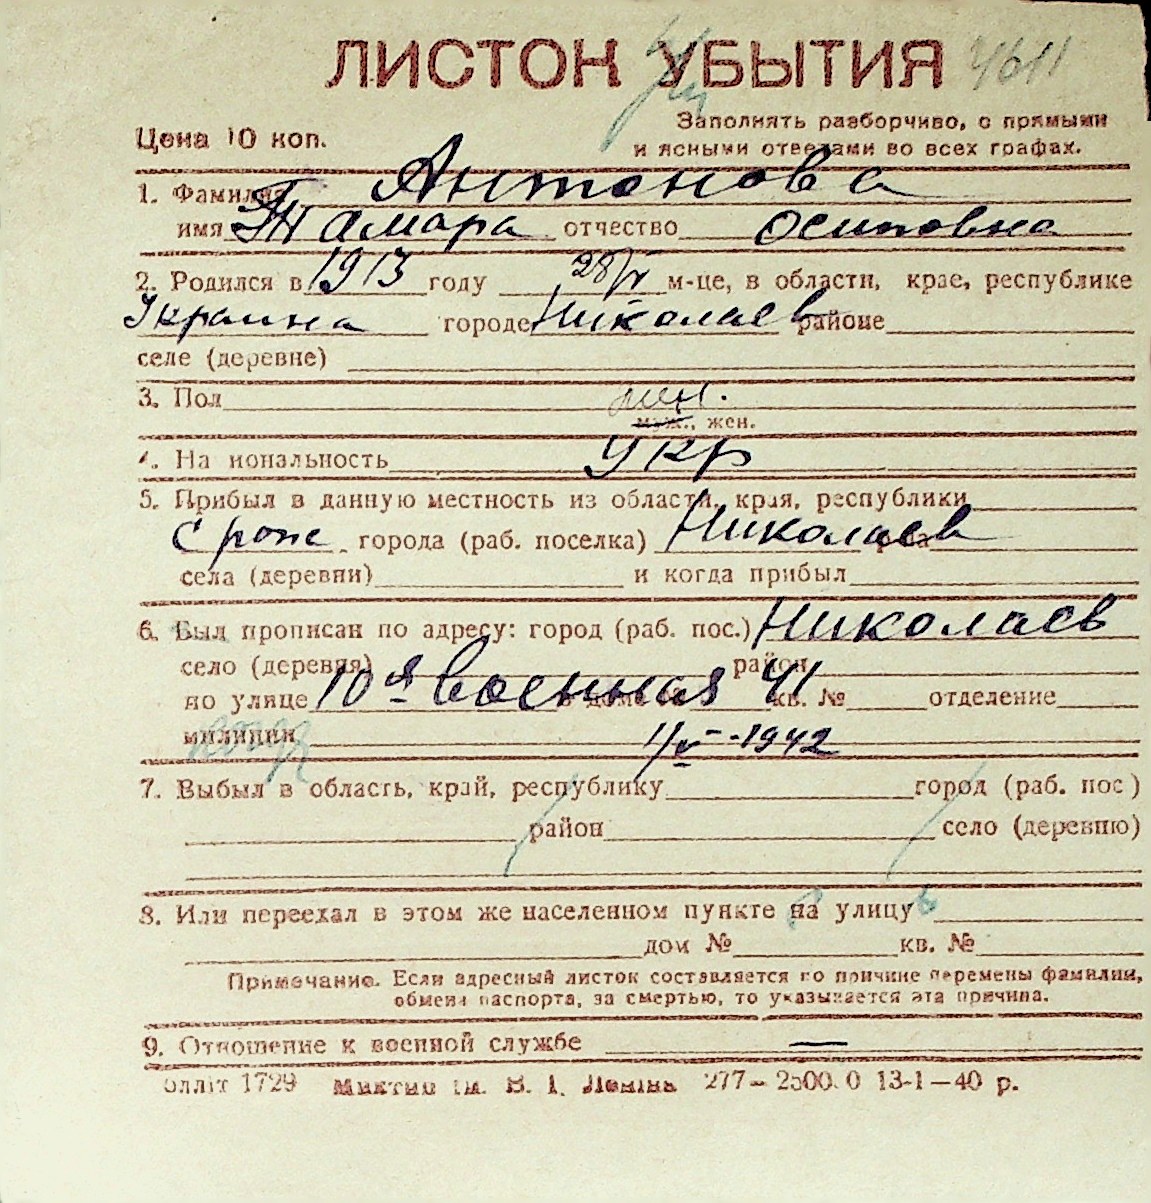 ЛИСТОК УБЫТИЯ 4611
Цена 10 коп.
Заполнять разборчиво, с прямыми
и ясными ответами во всех графах.
1. Фамилия Антонова
имя Тамара отчество Осиповна
2. Родился в 1913 году 28/V м-це, в области, крае, республике
Украина городе Николаев районе
селе (деревне)
3. Пол жен.
муж., жен.
4. Национальность Укр
5. Прибыл в данную местность из области, края, республики
города (раб. поселка) Николаев
села (деревни) и когда прибыл
6. Был прописан по адресу: город (раб. пос.) Николаев
село (деревня) район
по улице 10я Военная 41 в доме № кв. № отделение
милиции 1/V-1942
7. Выбыл в область, край, республику город (раб. пос)
район село (деревню)
8. Или переехал в этом же населенном пункте на улицу
дом № кв. №
Примечание. Если адресный листок составляется по причине перемены фамилии,
обмена паспорта, за смертью, то указывается эта причина.
9. Отношение к военной службе —
Оллiт 1729 В. I. Ленiна 277—2500.0 13-1—40 р.